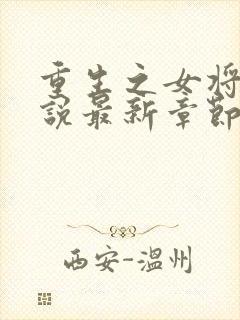 重生之女将
说最新章节
西安-温州